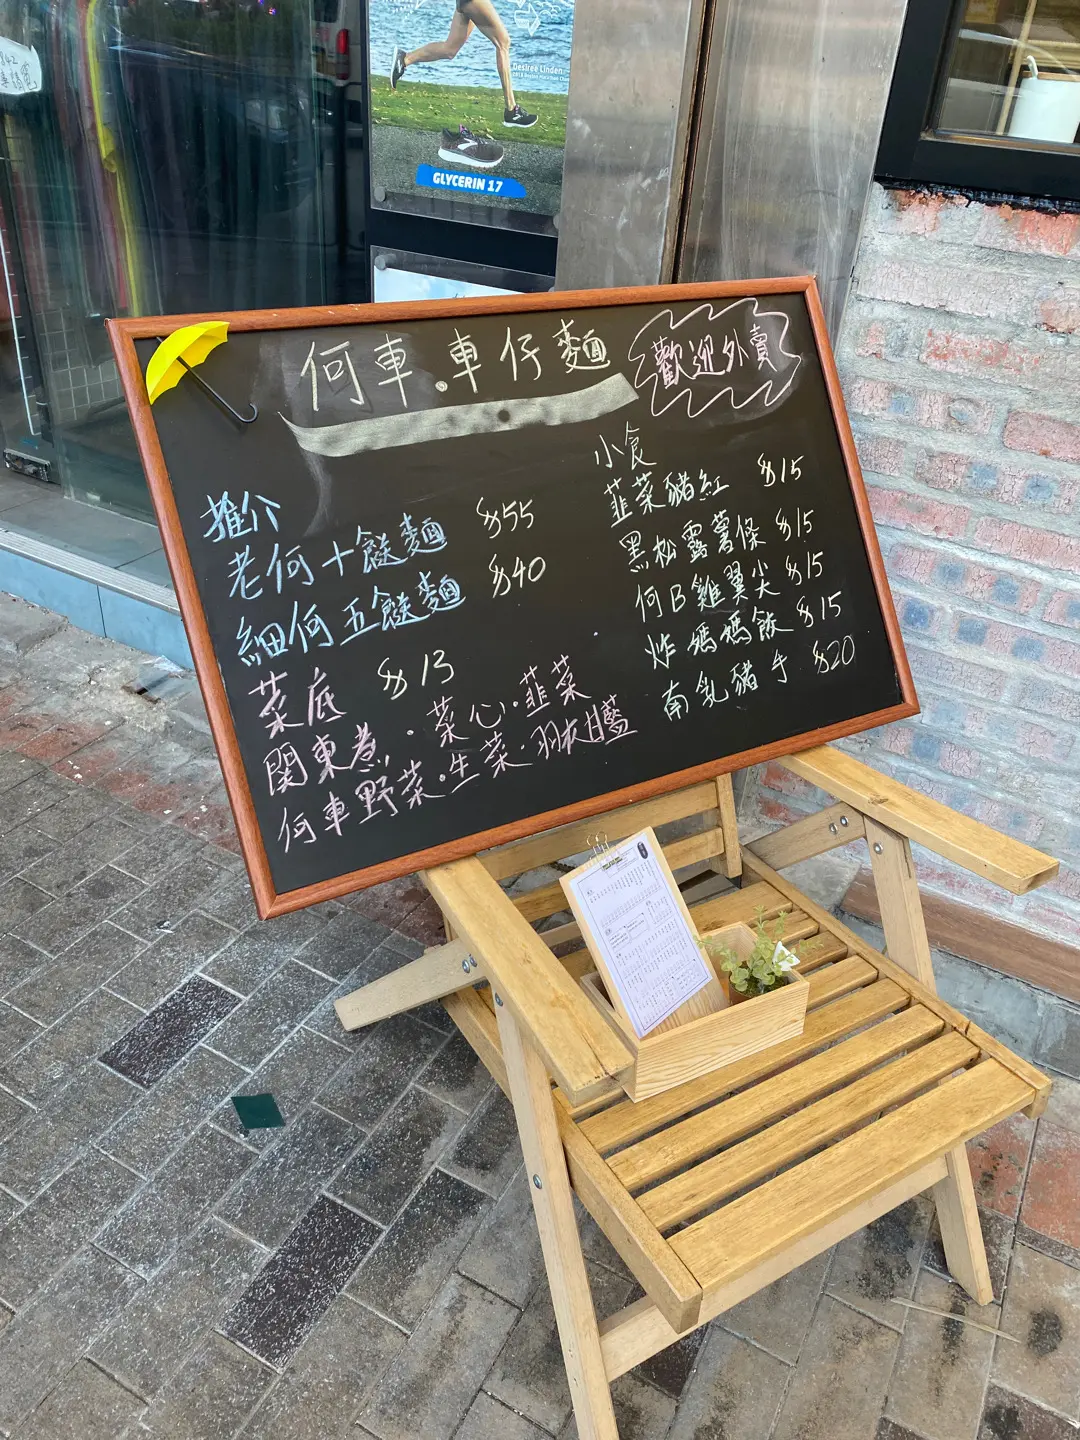 Desiree Linden
GLYCERIN 17
何車.車仔麵
歡迎外賣
推介
老何十餸麵 $55
細何五餸麵 $40
菜底 $13
関東煮.菜心.韮菜
何車野菜.生菜.羽衣甘藍
小食
韮菜豬紅 $15
黑松露薯條 $15
何B雞翼尖 $15
炸媽媽飯 $15
南乳豬手 $20